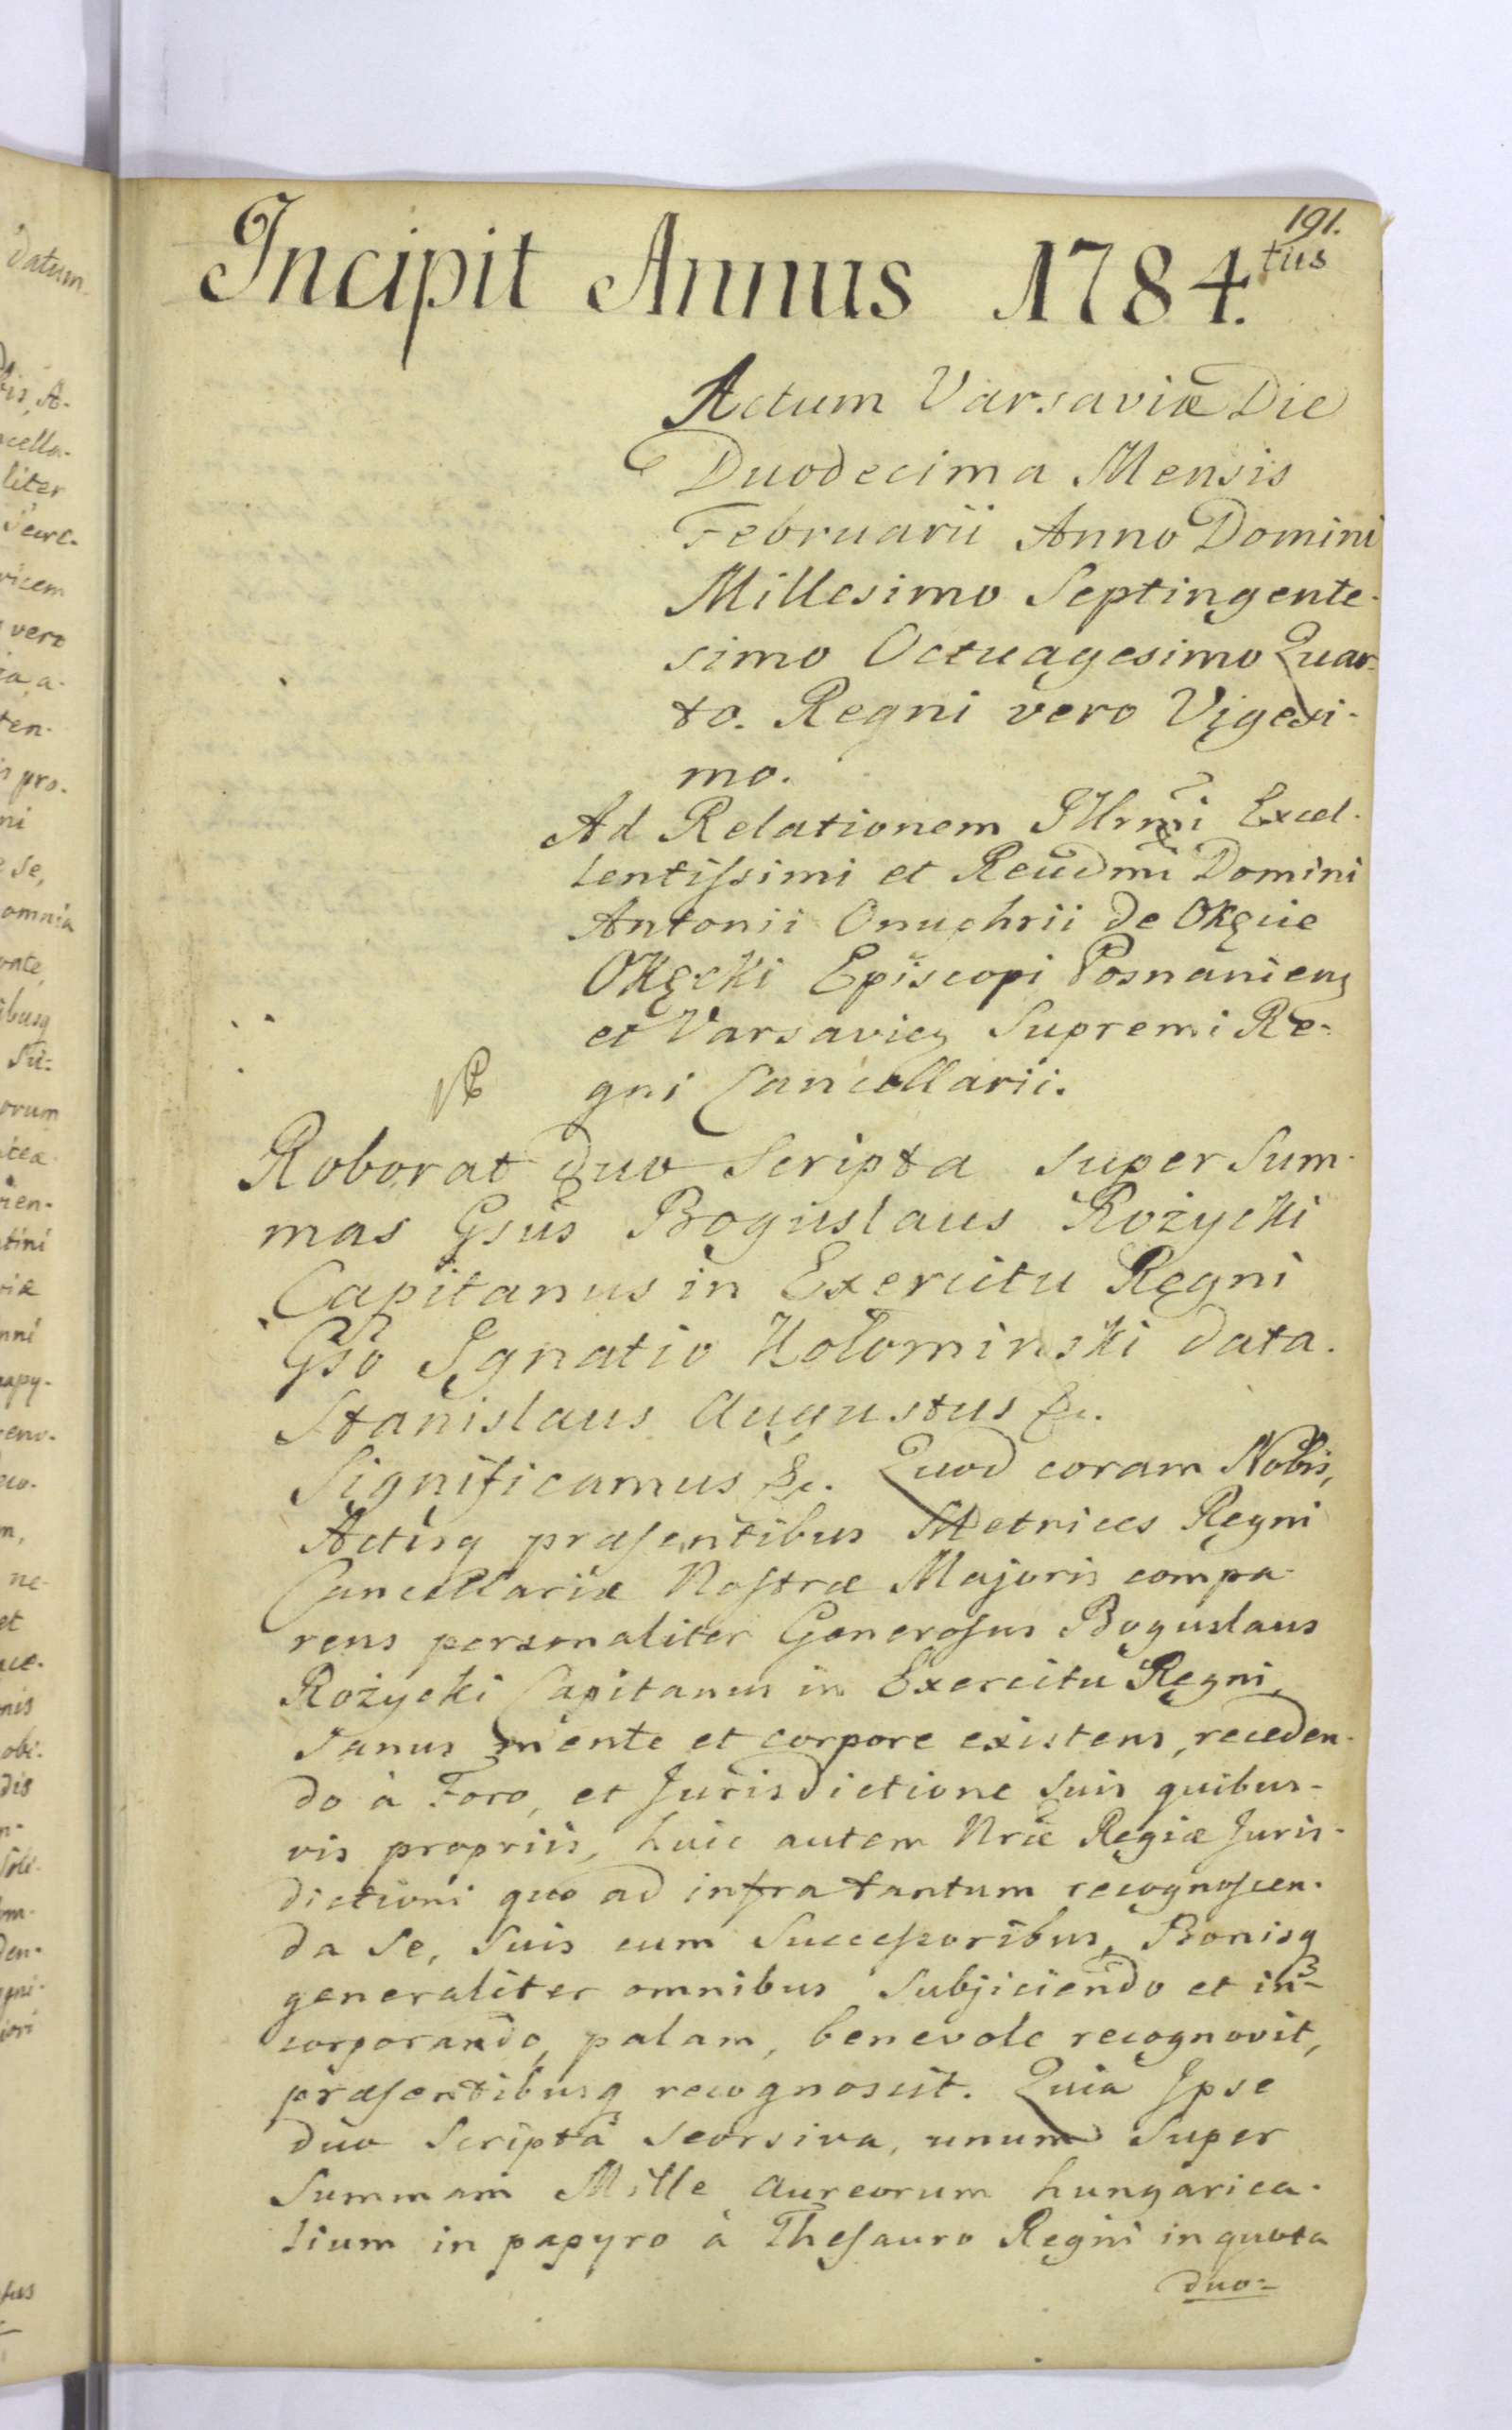 191.
Incipit Annus 1784.tus
Actum Varsaviæ Die
Duodecima Mensis
Februarii Anno Domini
Millesimo Septingente-
simo Octuagesimo Quar-
to. Regni vero Vigesi-
mo.
Ad Relationem Illrmi Excel-
lentiſsimi et Reudmi Domini
Antonii Onuphrii de Okęcie
Okęcki Episcopi Posnanieng
et Varsavieg Supremi Re-
gni Cancellarii.
Roborat duo Scripta super Sum-
mas Gsus Boguslaus Rożycki
Capitanus in Exercitu Regni
Gso Ignatio Kołominski data.
Stanislaus Augustus &c.
Significamus &c. Quod coram Nobis,
Actisq præſentibus Metrices Regni
Cancellariæ Noſtræ Majoris compa-
rens personaliter Generoſus Boguslaus
Rożycki Capitanus in Exercitu Regni,
Sanus mente et corpore existens, receden-
do à Foro, et Jurisdictione suis quibus-
vis propriis, huic autem Nræ Regiæ Juris-
dictioni quo ad infra tantum recognoſcen-
da Se, Suis cum Succeſsoribus, Bonisq
generaliter omnibus Subjiciendo et in-
corporando, palam, benevole recognovit,
præſentibusq recognoscit. Quia Ipse
duo Scripta seorsiva, unum Super
Summam Mille Aureorum hungarica-
lium in papyro à Theſauro Regni in quota
duo-
datum
cella-
liter
ricem
vero
ten-
pro-
se,
omnia
orum
tini
et